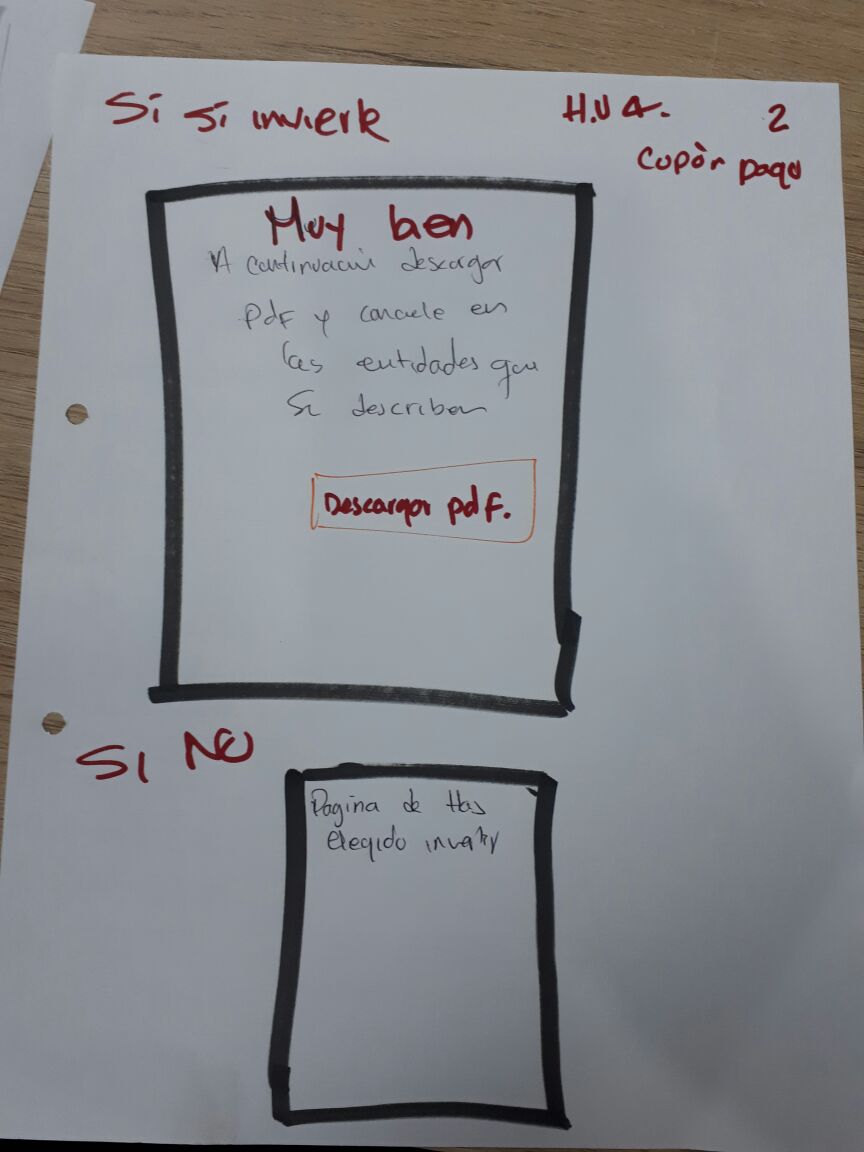 Si si invierte
H.U 4.
2
Cupòn pago
Muy bien
A continuación descargar
pdf y cancele en
las entidades que
se describen
Descargar pdf.
SI NO
Pagina de Has
elegido invertir